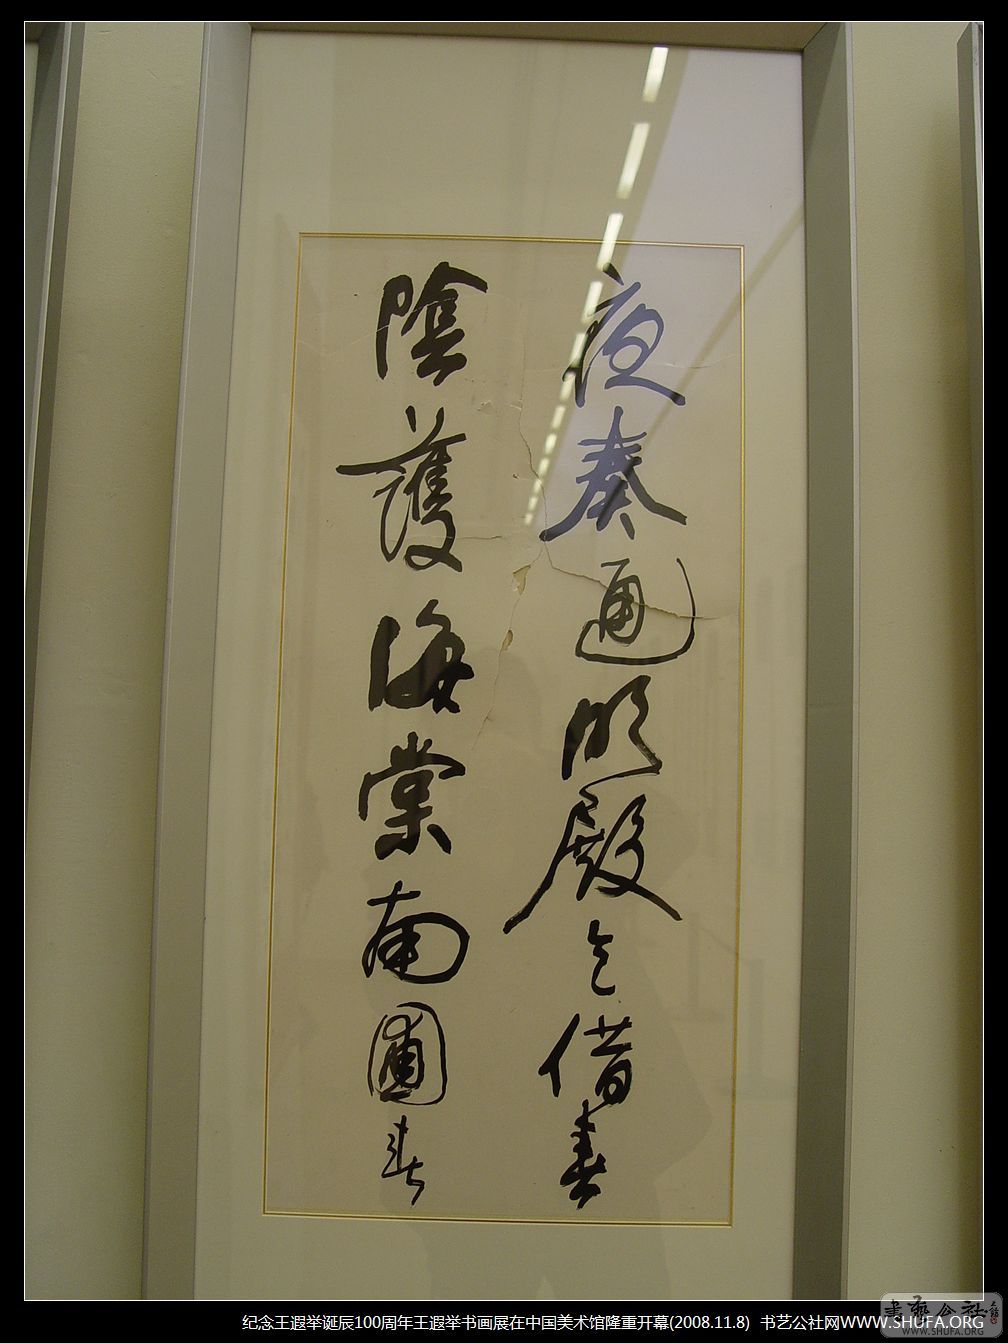 夜奏通明殿乞借春
陰護海棠南圃春
纪念王遐举诞辰100周年王遐举书画展在中国美术馆隆重开幕(2008.11.8) 书艺公社网WWW.SHUFA.ORG
書藝公社
WWW.SHUFA.ORG